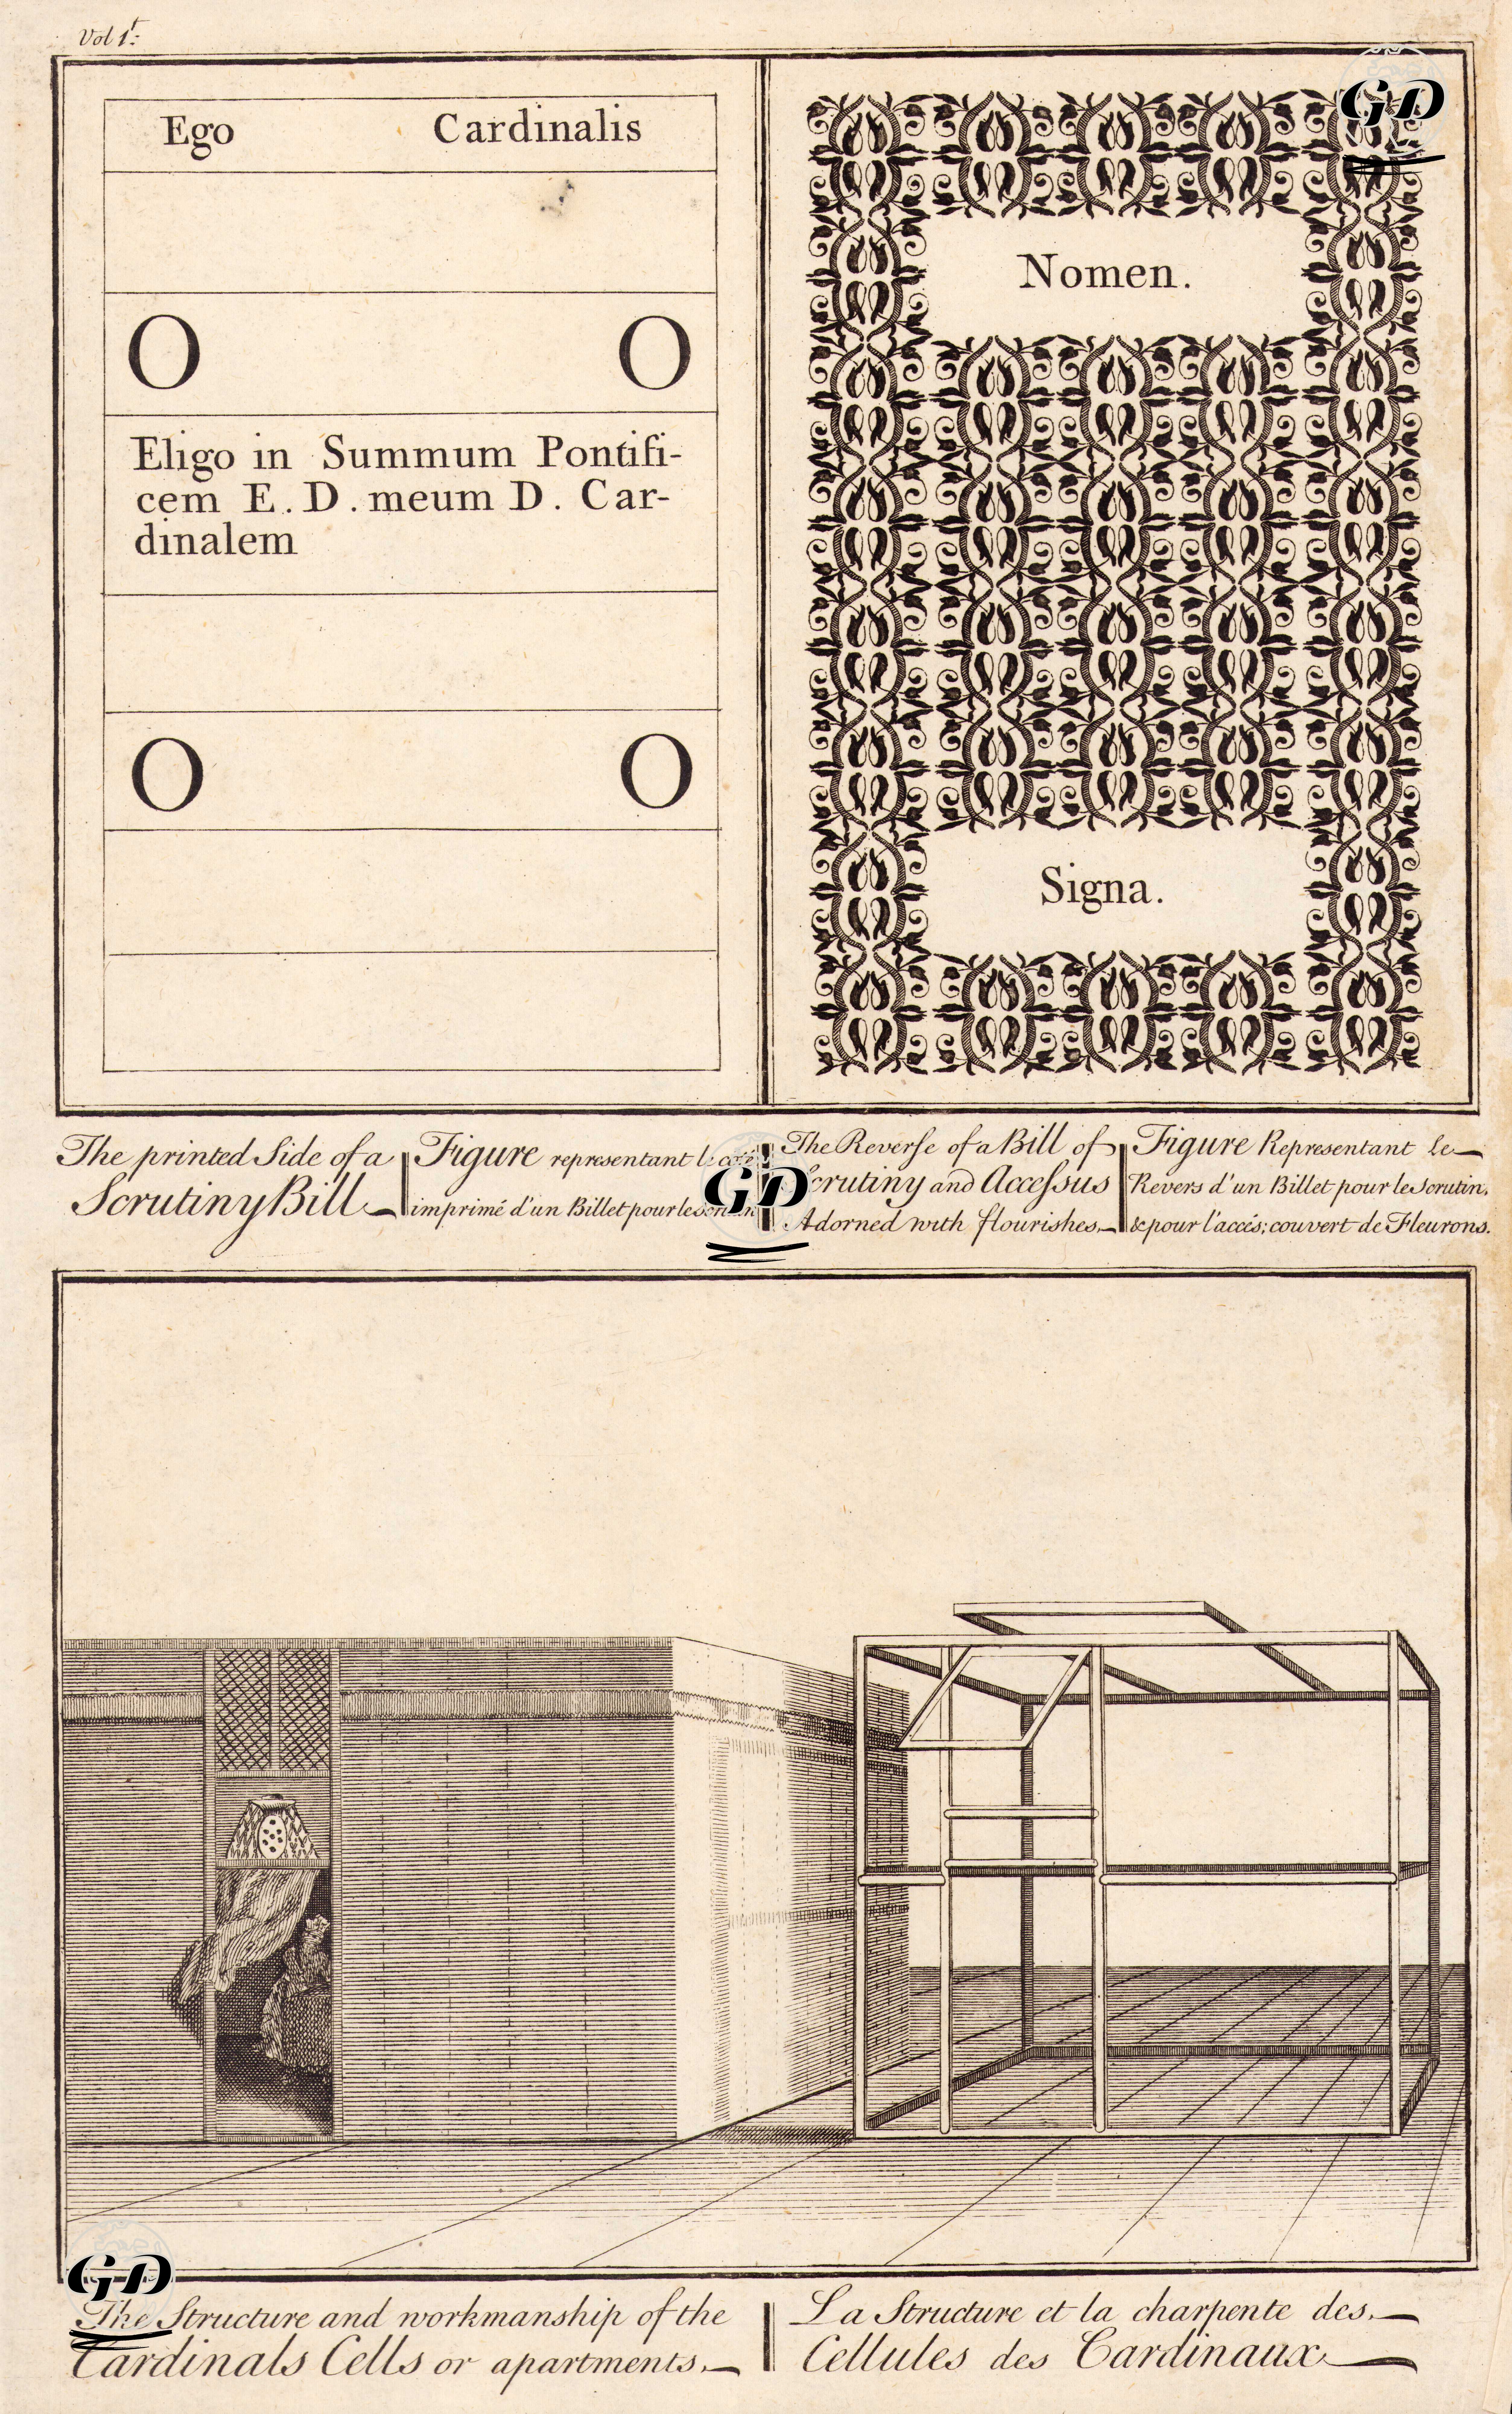 Vol 1.t:
Ego Cardinalis
O O
Eligo in Summum Pontifi-
cem E. D. meum D. Car-
dinalem
O O
Nomen.
Signa.
The printed Side of a
Scrutiny Bill
Figure representant le coté
imprimé d'un Billet pour le
The Reverse of a Bill of
Scrutiny and Accessus
Adorned with flourishes.
Figure Representant le
Revers d'un Billet pour le Scrutin,
& pour l'accés; couvert de Fleurons.
The Structure and workmanship of the
Cardinals Cells or apartments.
La Structure et la charpente des
Cellules des Cardinaux
GD
GD
GD